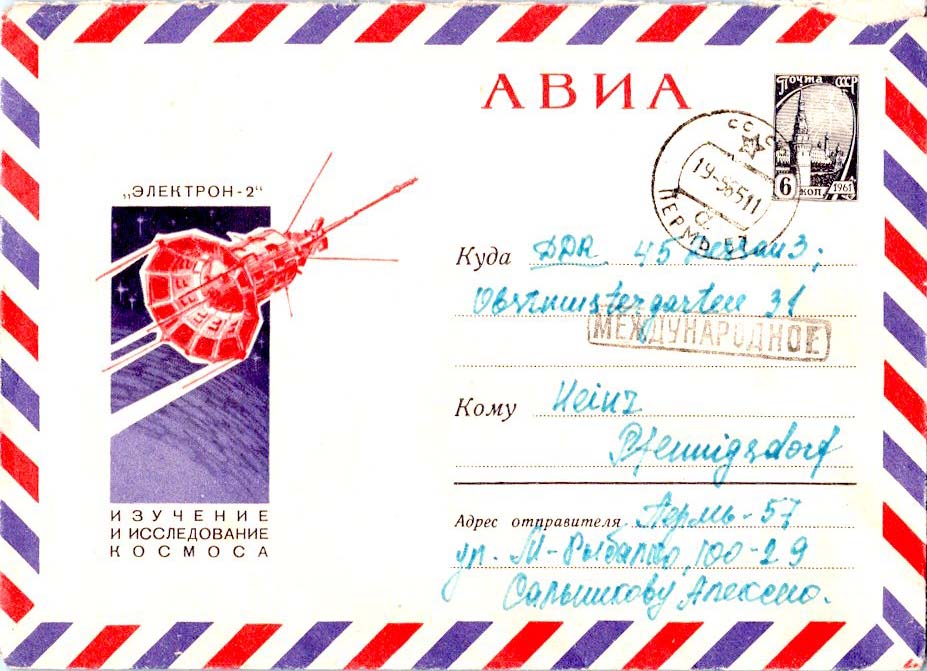 АВИА
Почта СССР
6 коп 1961
СССР
19-5-6511
ПЕРМЬ 57
„ЭЛЕКТРОН-2“
ИЗУЧЕНИЕ
И ИССЛЕДОВАНИЕ
КОСМОСА
Куда DDR 45 Dessau 3;
Obstmustergarten 31
МЕЖДУНАРОДНОЕ
Кому Heinz
Pfennigsdorf
Адрес отправителя Пермь-57
ул. М-Рыбалко, 100-29
Сальникову Алексею.